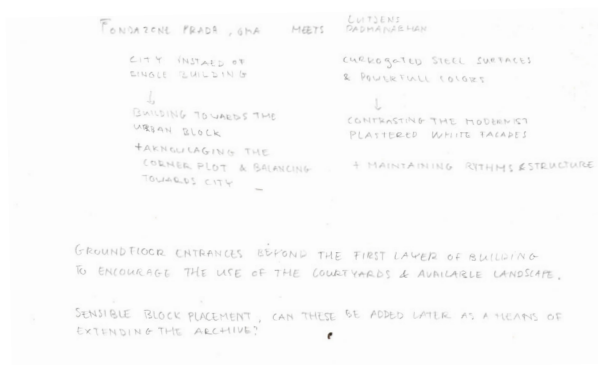 FONDATIONE PRADA, OMA MEETS LUTJENS PADMANABHAN
CITY INSTAED OF
SINGLE BUILDING
↓
BUILDING TOWARDS THE
URBAN BLOCK
+ THE
CORNER PLOT & BALANCING
TOWARDS CITY –
CURROGATED STEEL SURFACES
& POWERFULL COLORS
↓
CONTRASTING THE MODERNIST
PLATTERED WHITE FACADES
+ MAINTAINING RYTHMS & STRUCTURE
GROUNDFLOOR ENTRANCES BEYOND THE FIRST LAYER OF BUILDING
TO ENCOURAGE THE USE OF THE COURTYARDS & AVAILABLE LANDSCAPE.
SENSIBLE BLOCK PLACEMENT, CAN THESE BE ADDED LATER AS A MEANS OF
EXTENDING THE ARCHIVE?